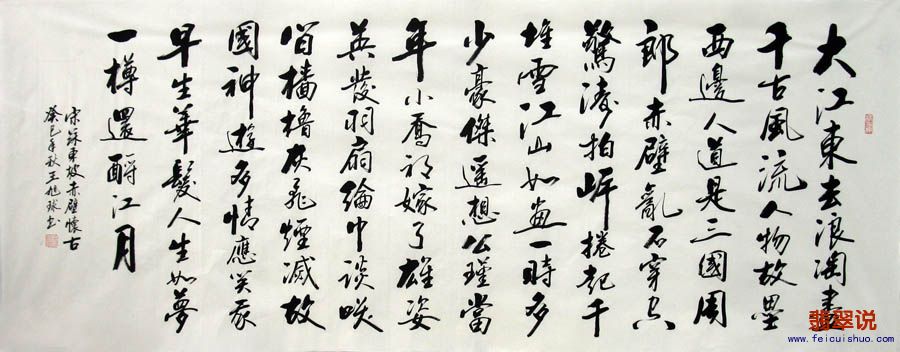 大江東去浪淘盡
千古風流人物故壘
西邊人道是三國周
郎赤壁亂石穿空
驚濤拍岸捲起千
堆雪江山如畫一時多
少豪傑遙想公瑾當
年小喬初嫁了雄姿
英發羽扇綸巾談咲
間檣櫓灰飛煙滅故
國神遊多情應笑我
早生華髮人生如夢
一樽還酹江月
宋蘇東坡赤壁懷古
癸巳年秋王旭球書
翡翠说
www.feicuishuo.com